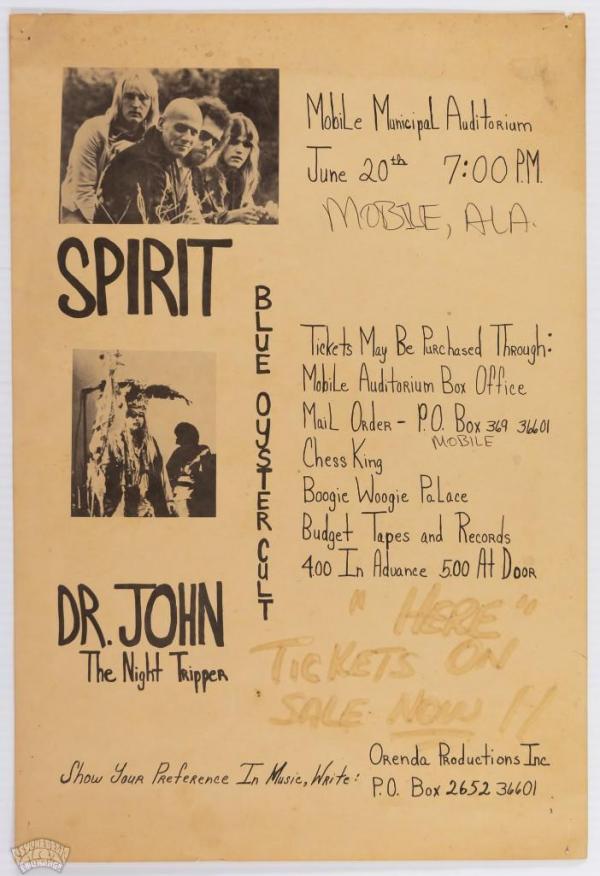 Mobile Municipal Auditorium
June 20th 7:00 P.M.
MOBILE, ALA.
SPIRIT
BLUE OYSTER CULT
Tickets May Be Purchased Through:
Mobile Auditorium Box Office
Mail Order - P.O. Box 369 36601
MOBILE
Chess King
Boogie Woogie Palace
Budget Tapes and Records
4.00 In Advance 5.00 At Door
DR. JOHN
The Night Tripper
"HERE"
TICKETS ON
SALE NOW !!
Show Your Preference In Music, Write:
Orenda Productions Inc.
P.O. Box 2652 36601
PSYCHEDELIC
ART
EXCHANGE